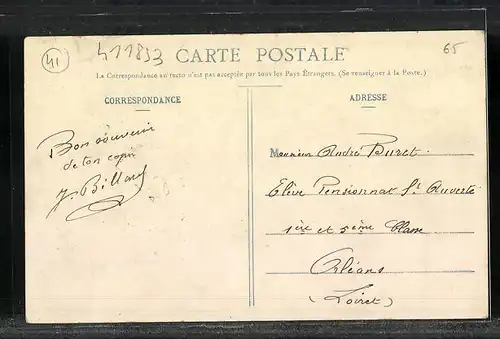 41
411853
CARTE POSTALE
65
La Correspondance au recto n'est pas acceptée par tous les Pays Étrangers. (Se renseigner à la Poste.)
CORRESPONDANCE
ADRESSE
Bon souvenir
de ton copin
J. Billard
Monsieur André Buret
Elève Pensionnat St Euverte
1ère et 5ème Classe
Orléans
(Loiret)